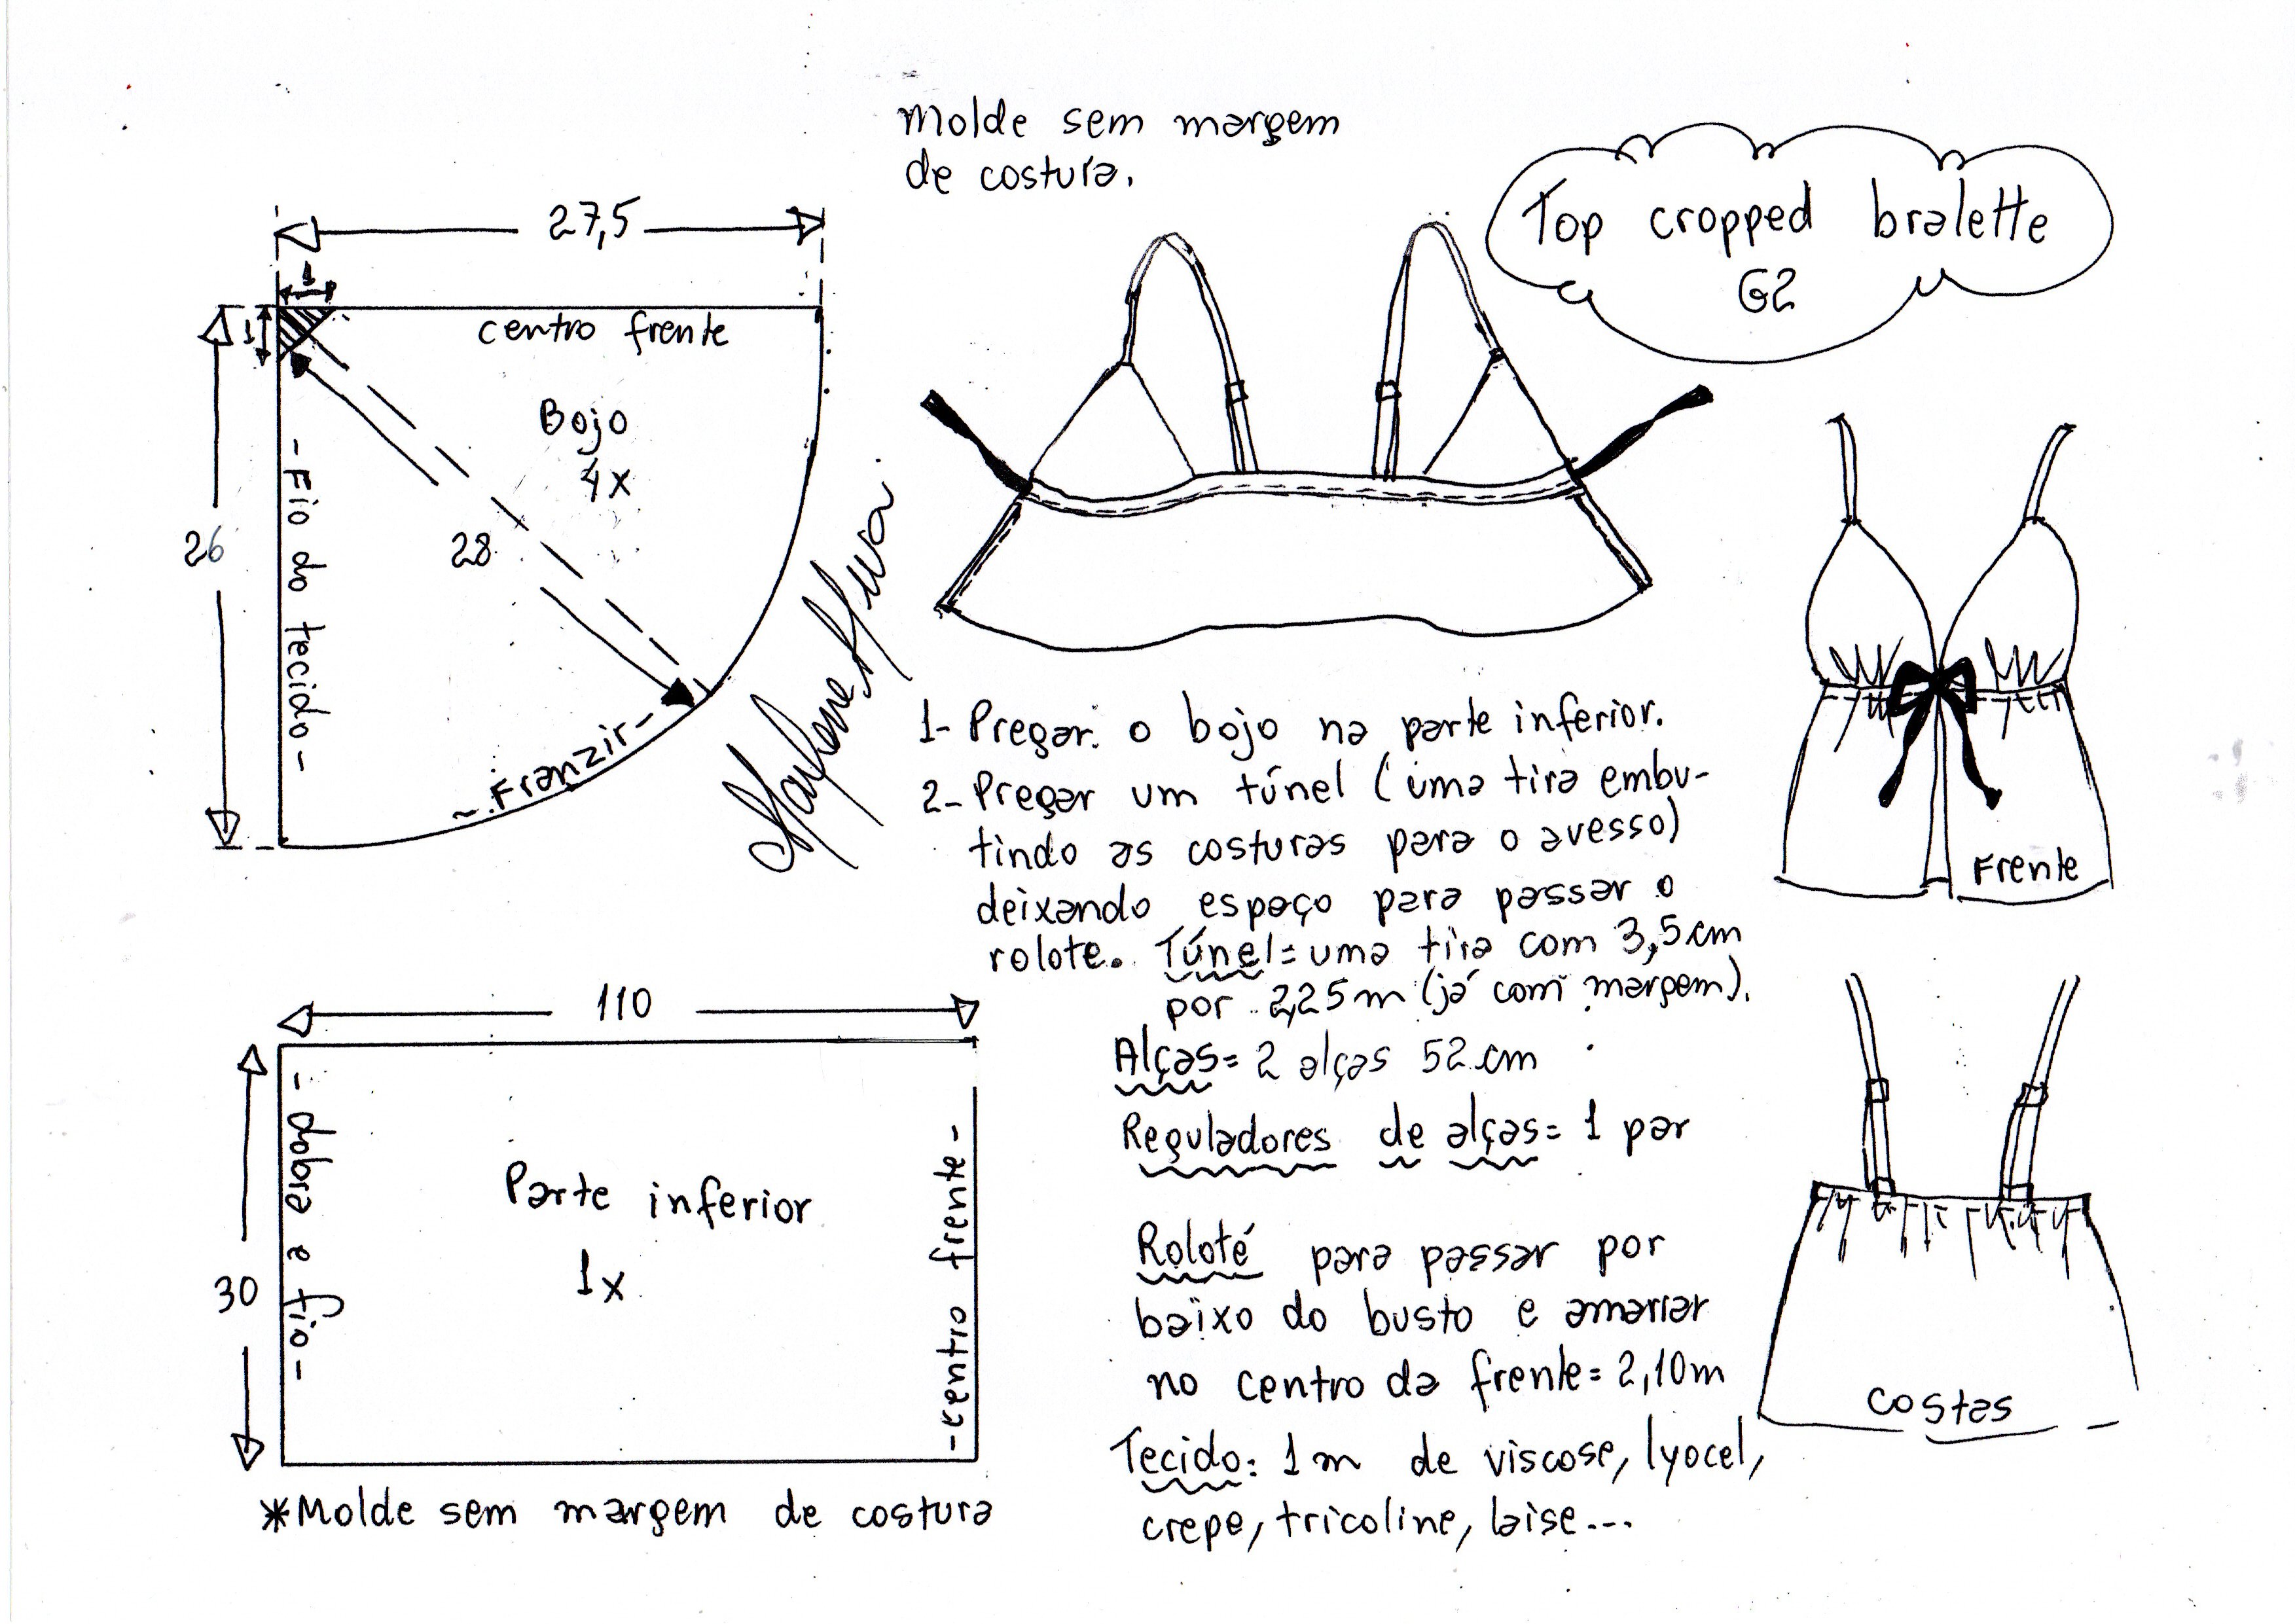 Molde sem margem
de costura.
Top cropped bralette
G2
27,5
1
1
centro frente
Bojo
4x
26
28
-Fio do tecido-
-Franzir-
1- Pregar o bojo na parte inferior.
2- Pregar um túnel (uma tira embu-
tindo as costuras para o avesso)
deixando espaço para passar o
rolote. Túnel= uma tira com 3,5cm
por 2,25m (já com margem).
Alças= 2 alças 52 cm
Reguladores de alças= 1 par
Roloté para passar por
baixo do busto e amarrar
no centro da frente= 2,10m
Tecido: 1m de viscose, lyocel,
crepe, tricoline, laise...
Frente
Costas
110
30
-Dobra e fio-
Parte inferior
1x
-centro frente-
*Molde sem margem de costura